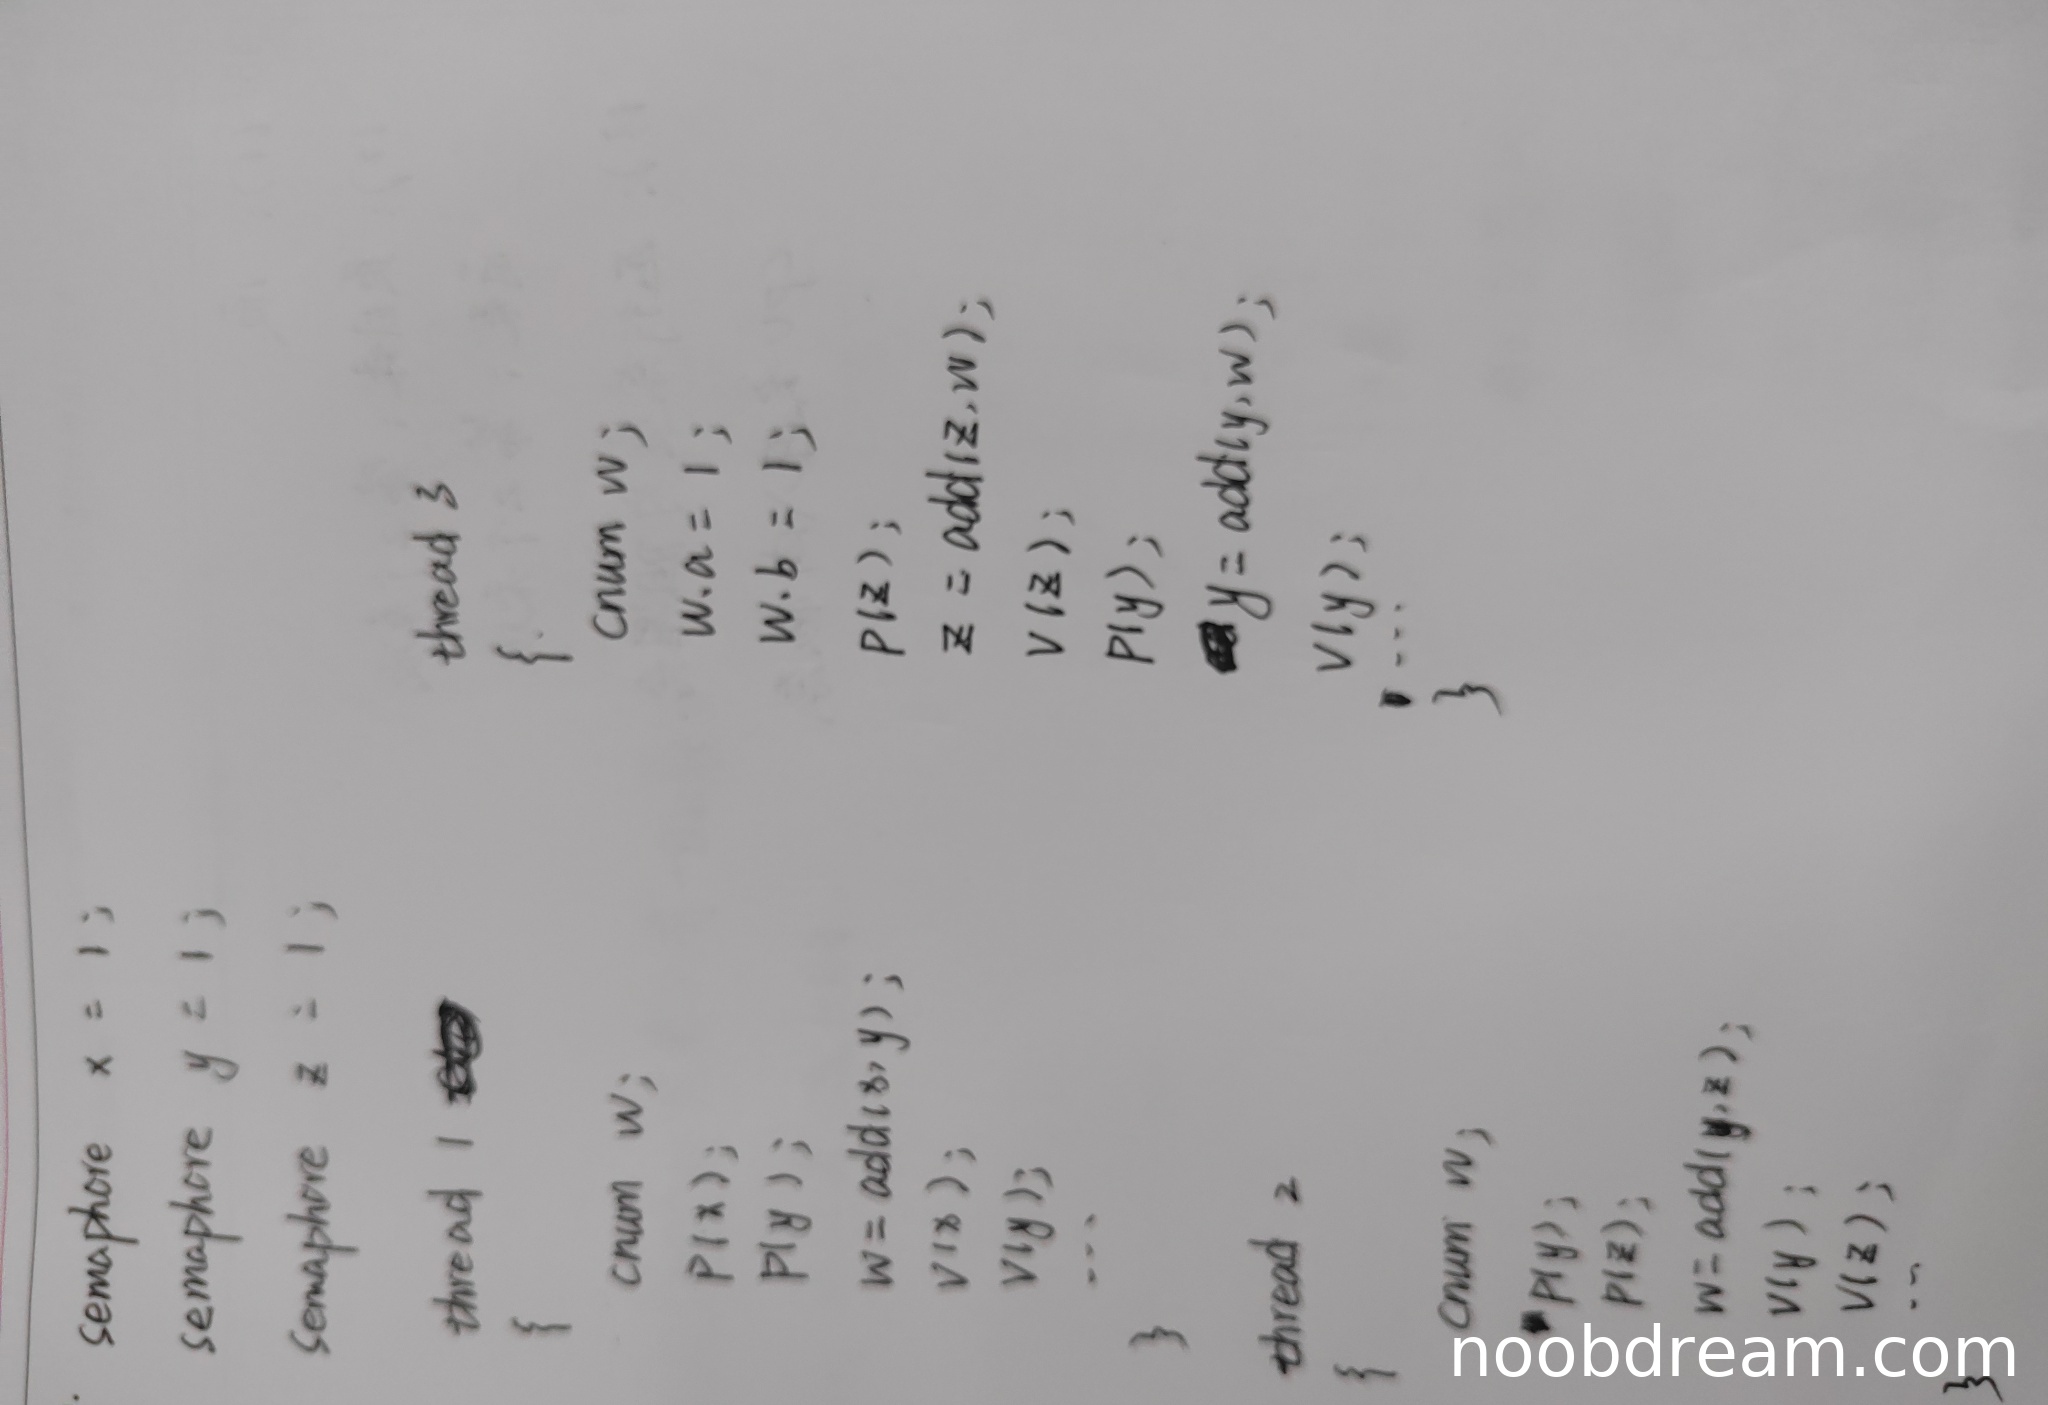 semaphore x = 1;
semaphore y = 1;
semaphore z = 1;
thread 1
{
cnum w;
P(x);
P(y);
w = add(x,y);
V(x);
V(y);
...
}
thread 2
{
cnum w;
P(y);
P(z);
w = add(y,z);
V(y);
V(z);
...
}
thread 3
{
cnum w;
w.a = 1;
w.b = 1;
P(z);
z = add(z,w);
V(z);
P(y);
y = add(y,w);
V(y);
...
}
noobdream.com